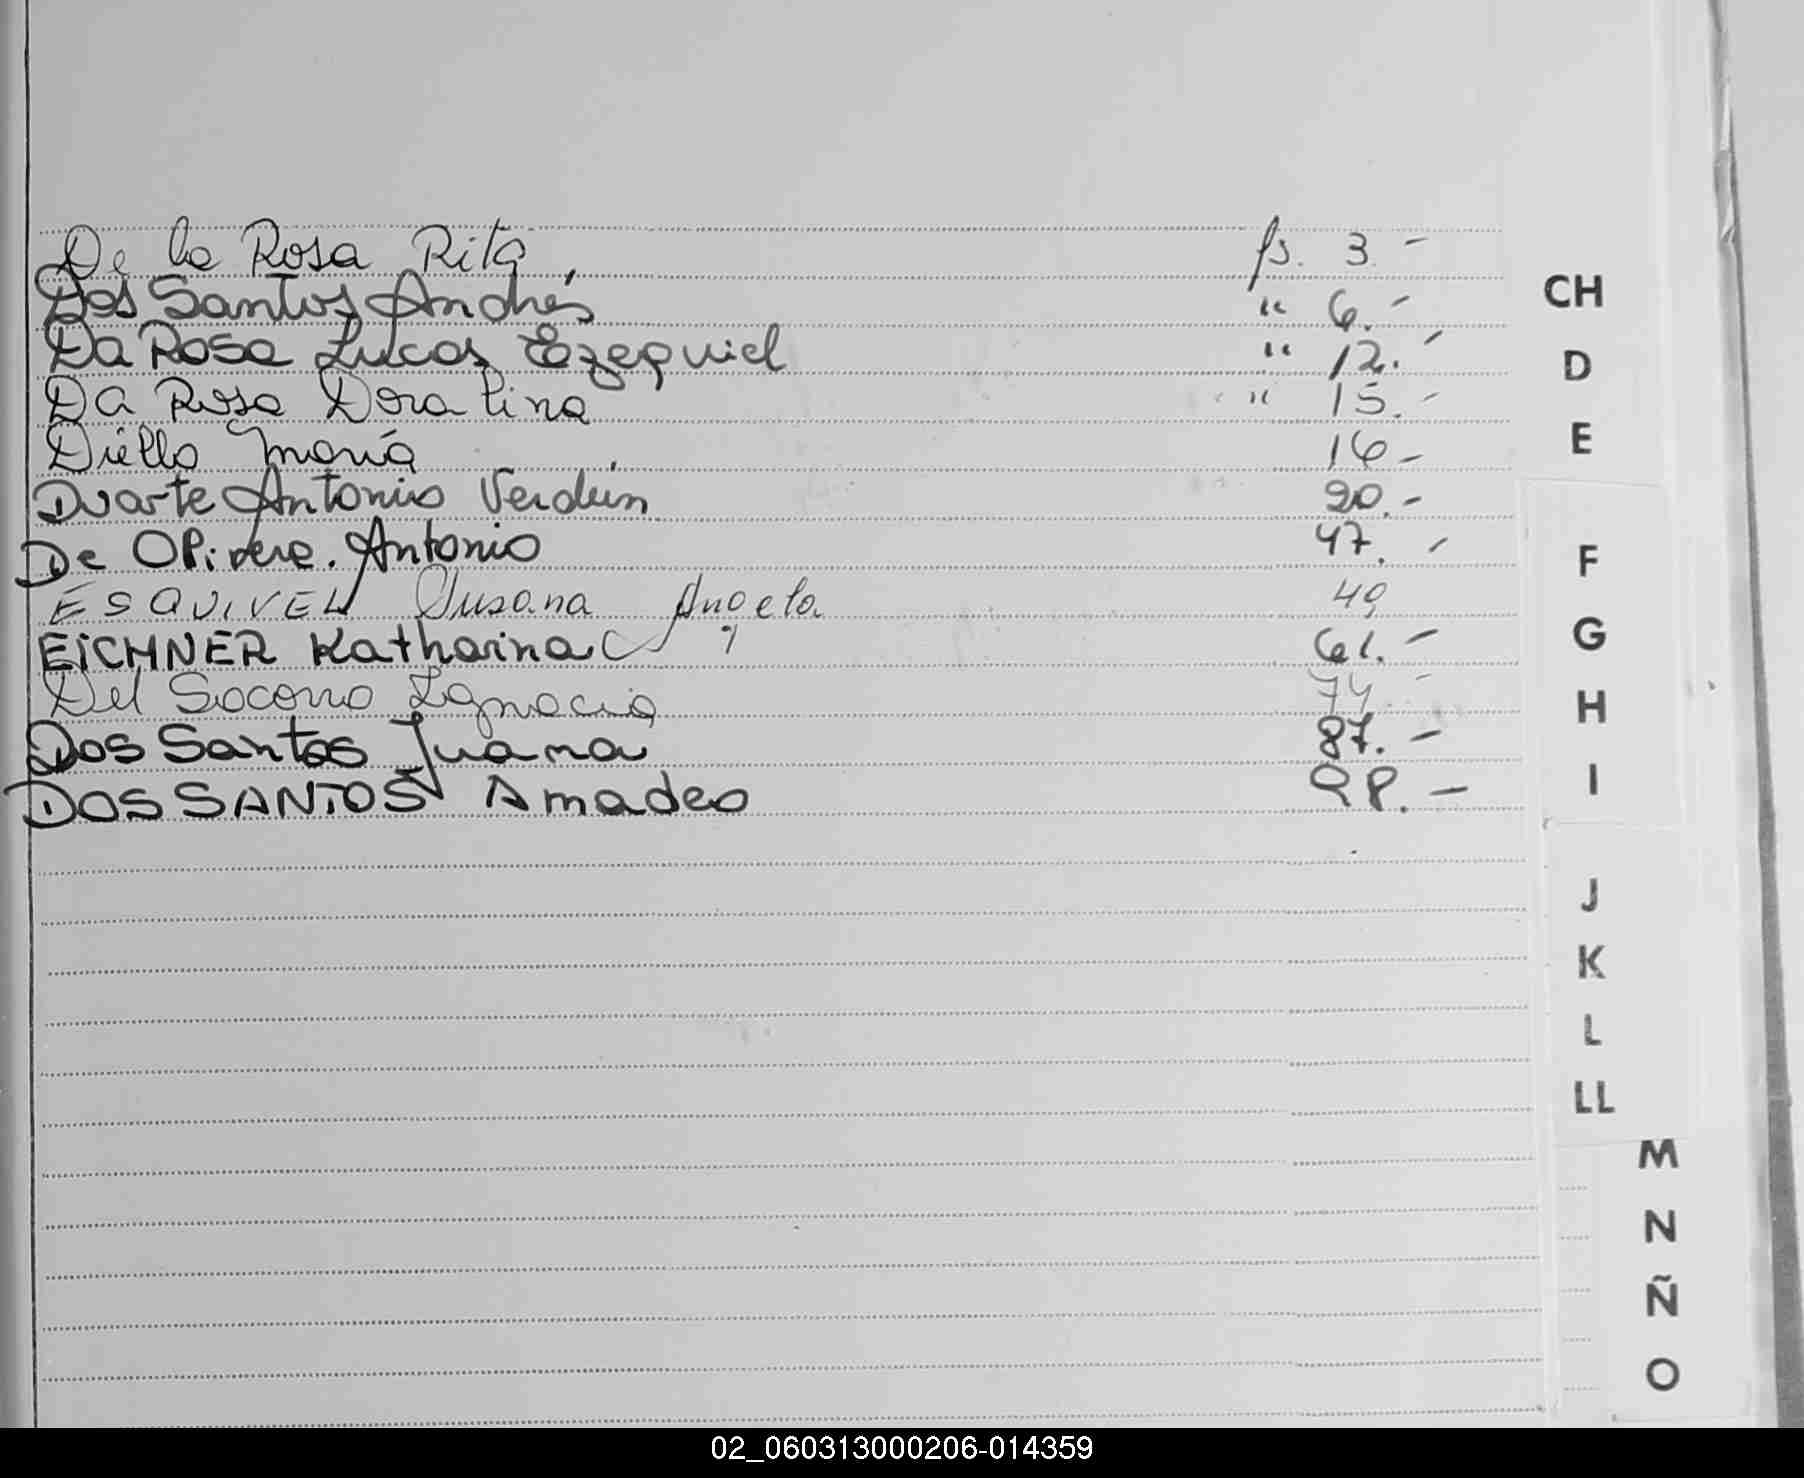 De la Rosa Rita fs. 3.-
Dos Santos Andrés " 6.-
Da Rosa Lucas Ezequiel " 12.-
Da Rosa Doralina " 15.-
Diello María 16-
Duarte Antonio Verdún 20.-
De Olivera. Antonio 47.-
ESQUIVEL Susana Angela 49
EiCHNER Katharina 61.-
Del Socorro Ignacia 74-
Dos Santos Juana 87.-
DOS SANTOS Amadeo 98.-
CH
D
E
F
G
H
I
J
K
L
LL
M
N
Ñ
O
02_060313000206-014359